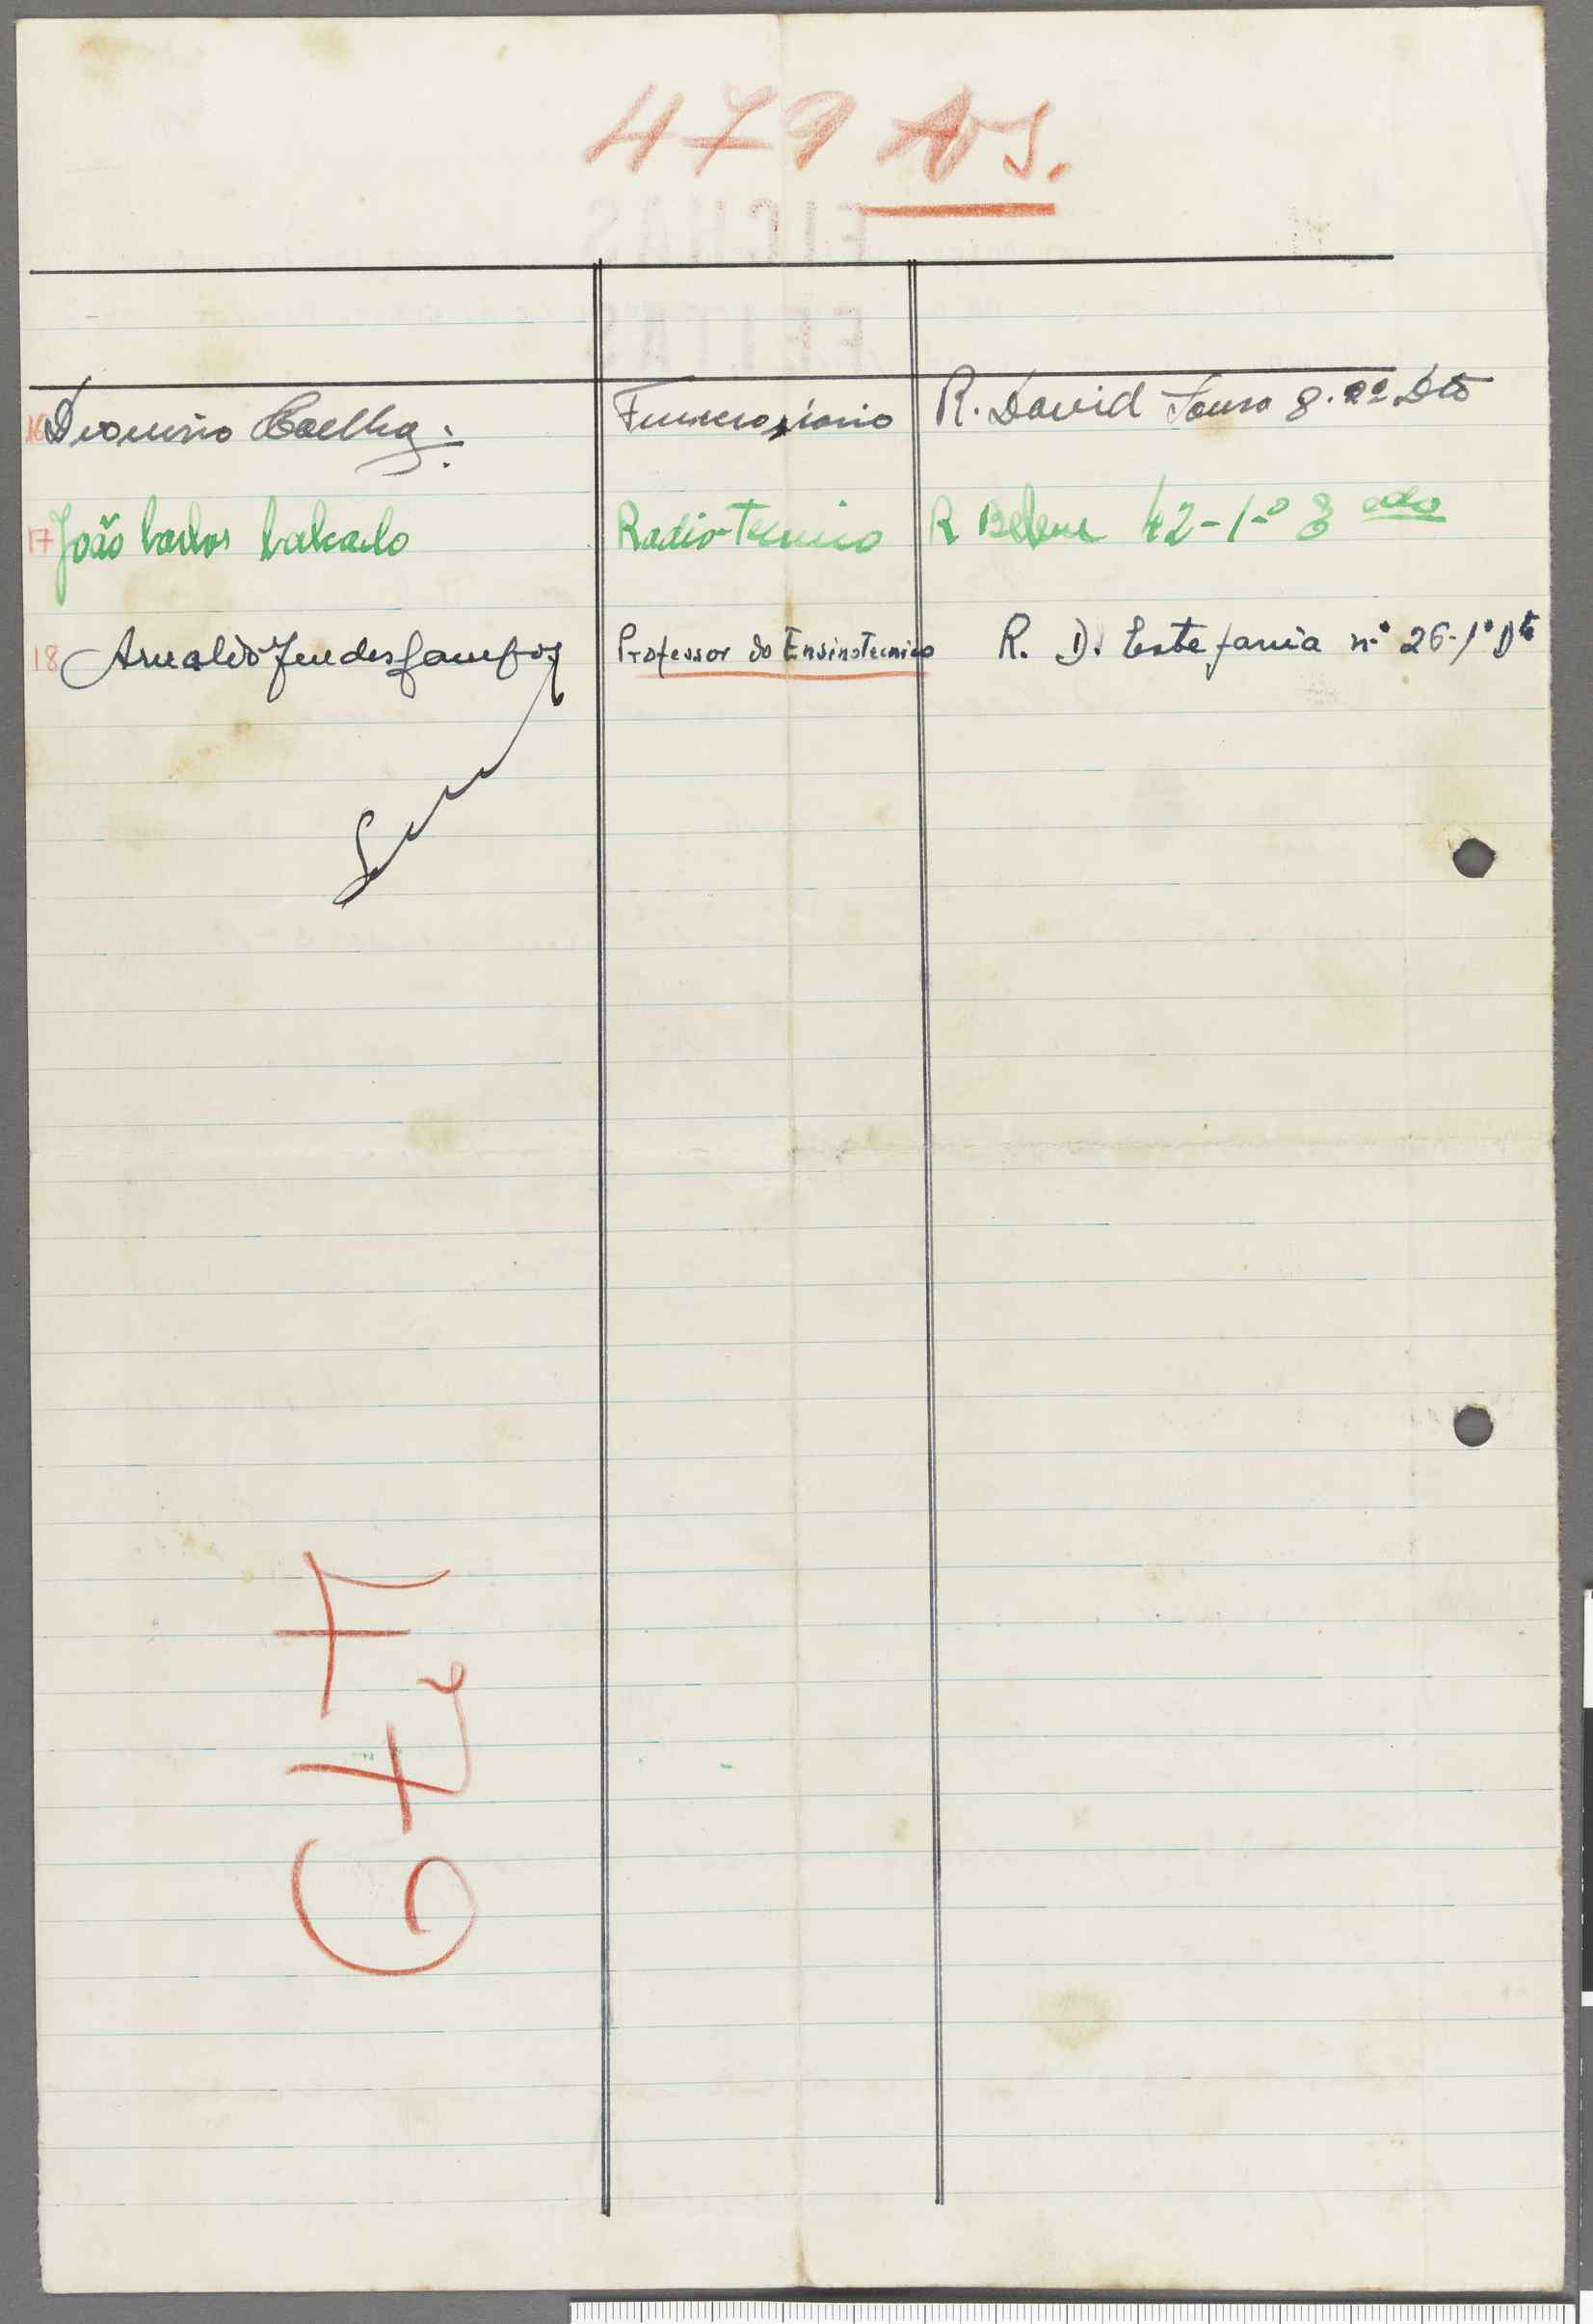 479
FICHAS
FEITAS
16 Dionisio Coelho Funcionario R. David Sousa 8. 2º Dto
17 João Carlos Calcado Radio-Tecnico R Belem 42-1-º
18 Arnaldo Mendes Sampos Professor do Ensino Tecnico R. D. Estefania nº 26-1º Dto
479